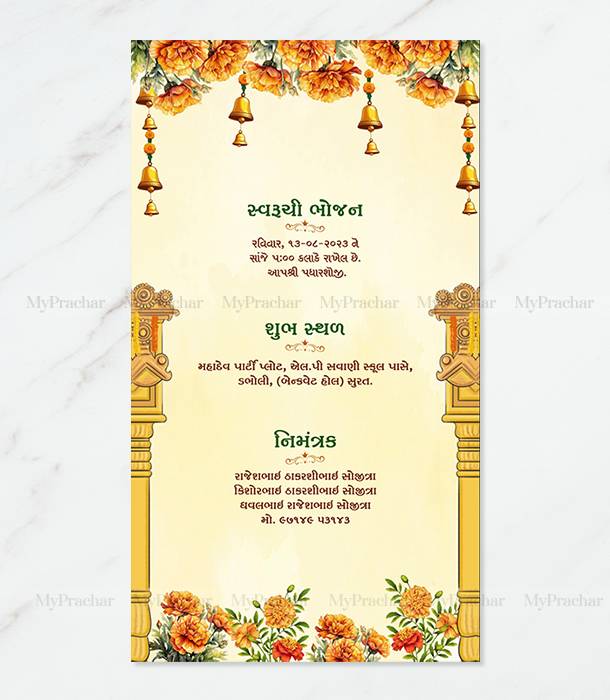 સ્વરૂચી ભોજન
રવિવાર, ૧૩-૦૮-૨૦૨૩ ને
સાંજે ૫:૦૦ કલાકે રાખેલ છે.
આપશ્રી પધારશોજી.
MyPrachar MyPrachar MyPrachar MyPrachar MyPrachar MyPrachar
શુભ સ્થળ
મહાદેવ પાર્ટી પ્લોટ, એલ.પી સવાણી સ્કૂલ પાસે,
ડભોલી, (બેન્કવેટ હોલ) સુરત.
નિમંત્રક
રાજેશભાઇ ઠાકરશીભાઇ સોજીત્રા
કિશોરભાઇ ઠાકરશીભાઇ સોજીત્રા
ધવલભાઇ રાજેશભાઇ સોજીત્રા
મો. ૯૭૧૪૯ ૫૩૧૪૩
MyPrachar MyPrachar MyPrachar MyPrachar MyPrachar MyPrachar